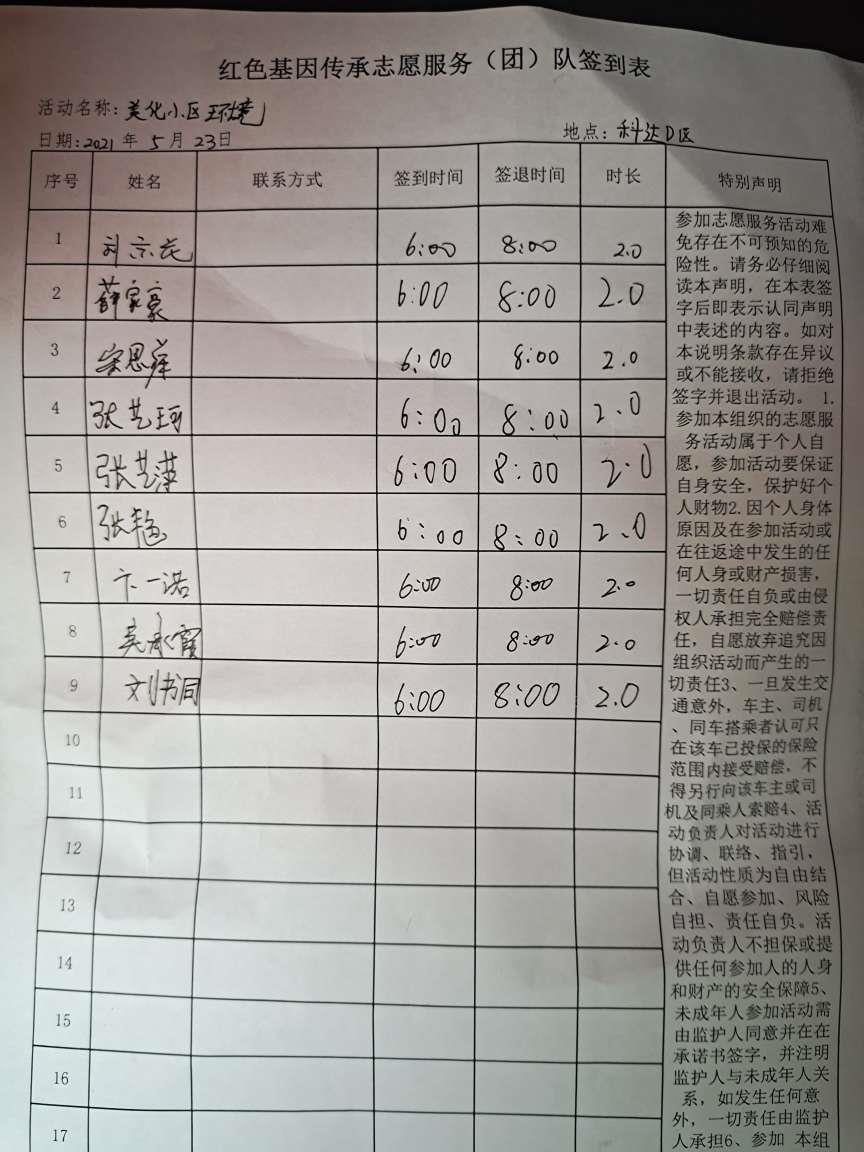 红色基因传承志愿服务（团）队签到表
活动名称：美化小区环境
日期：2021 年 5 月 23日
地点：科达D区
序号 姓名 联系方式 签到时间 签退时间 时长 特别声明
1 6:00 8:00 2.0
2 薛家豪 6:00 8:00 2.0
3 宋思萍 6:00 8:00 2.0
4 张艺珂 6:00 8:00 2.0
5 张艺萍 6:00 8:00 2.0
6 张艳 6:00 8:00 2.0
7 卞一诺 6:00 8:00 2.0
8 吴承霄 6:00 8:00 2.0
9 刘书洞 6:00 8:00 2.0
10
11
12
13
14
15
16
17
参加志愿服务活动难
免存在不可预知的危
险性。请务必仔细阅
读本声明，在本表签
字后即表示认同声明
中表述的内容。如对
本说明条款存在异议
或不能接收，请拒绝
签字并退出活动。 1.
参加本组织的志愿服
务活动属于个人自
愿，参加活动要保证
自身安全，保护好个
人财物2.因个人身体
原因及在参加活动或
在往返途中发生的任
何人身或财产损害，
一切责任自负或由侵
权人承担完全赔偿责
任，自愿放弃追究因
组织活动而产生的一
切责任3、一旦发生交
通意外，车主、司机
、同车搭乘者认可只
在该车已投保的保险
范围内接受赔偿，不
得另行向该车主或司
机及同乘人索赔4、活
动负责人对活动进行
协调、联络、指引，
但活动性质为自由结
合、自愿参加、风险
自担、责任自负。活
动负责人不担保或提
供任何参加人的人身
和财产的安全保障5、
未成年人参加活动需
由监护人同意并在在
承诺书签字，并注明
监护人与未成年人关
系，如发生任何意
外，一切责任由监护
人承担6、参加 本组